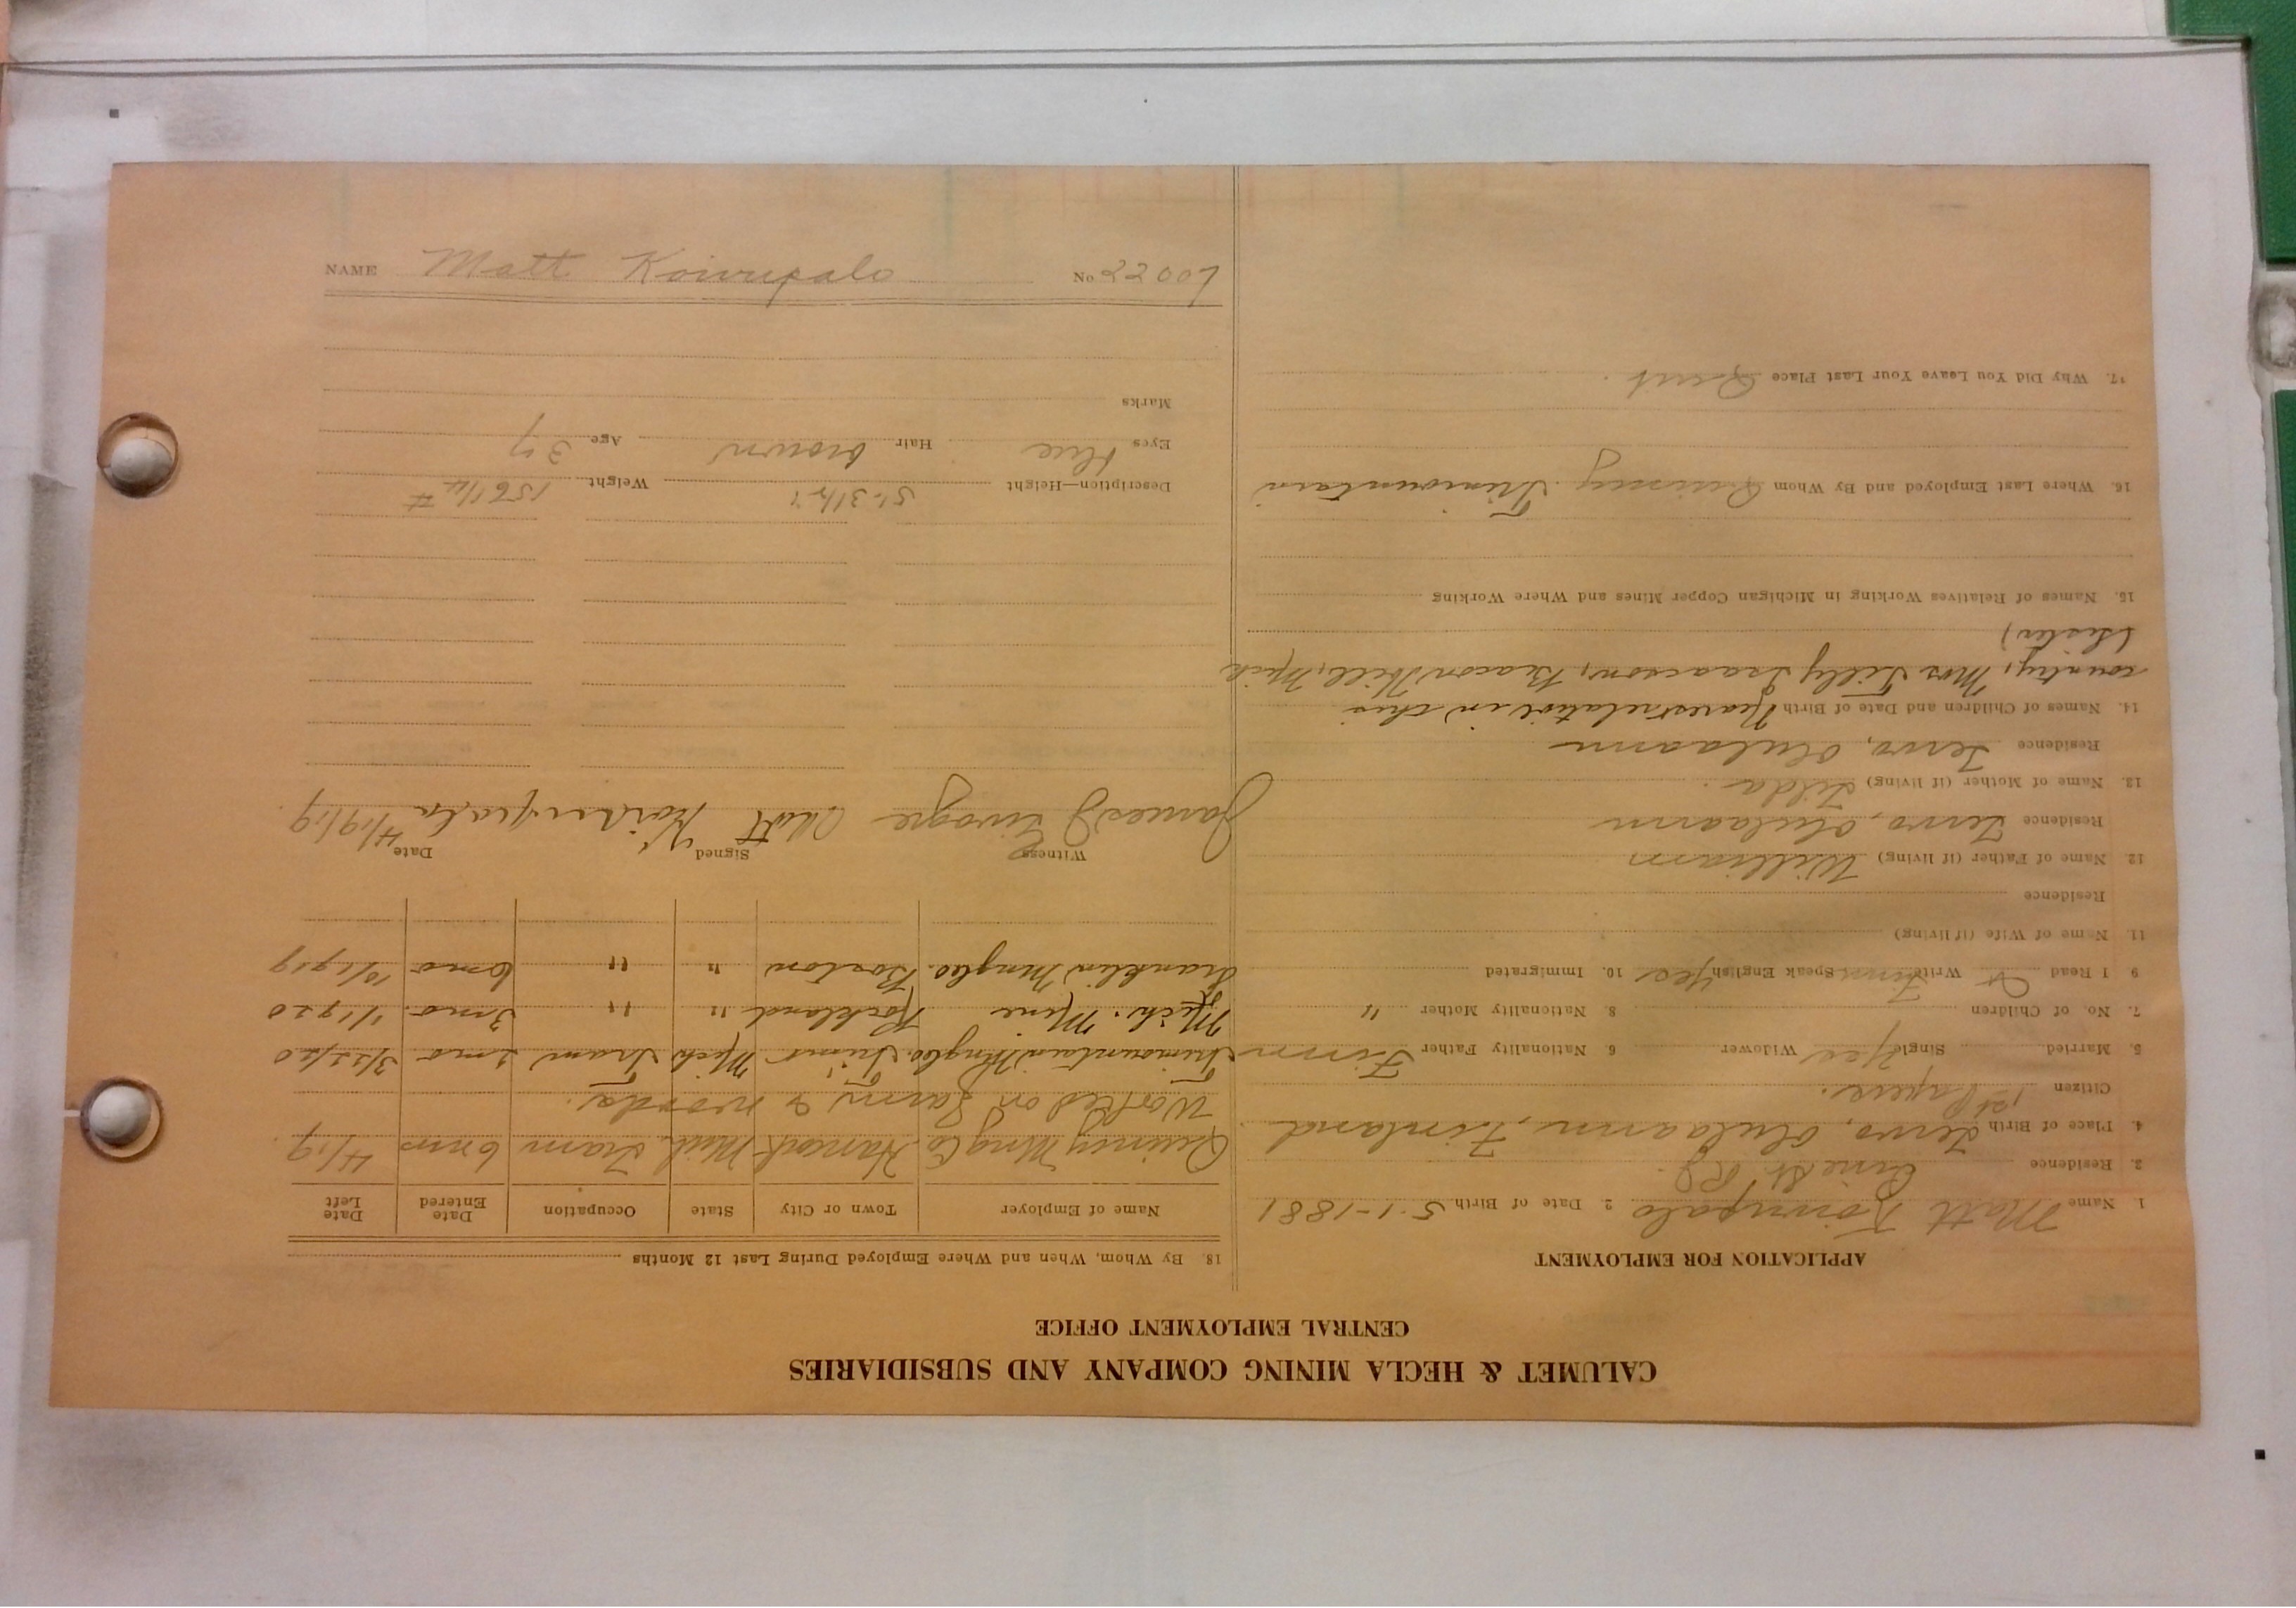 CALUMET & HECLA MINING COMPANY AND SUBSIDIARIES
CENTRAL EMPLOYMENT OFFICE
APPLICATION FOR EMPLOYMENT
1. Name Matt Koivupalo 2. Date of Birth 5-1-1881
3. Residence Pine St. RJ.
4. Place of Birth Tervo, Olulaann, Finland
Citizen 1st Papers.
5. Married Single Yes Widower 6. Nationality Father Finn
7. No. of Children 8. Nationality Mother "
9 I Read & Write Finn Speak English Yes 10. Immigrated
11. Name of Wife (if living)
Residence
12. Name of Father (if living) William
Residence Tervo, Olulaann
13. Name of Mother (if living) Tilda
Residence Tervo, Olulaann
14. Names of Children and Date of Birth Nearest relative in this
country, Mrs Tilly Isaacson, Beacon Hill, Mich
(sister)
15. Names of Relatives Working in Michigan Copper Mines and Where Working
16. Where Last Employed and By Whom Quincy. Trimountain
17. Why Did You Leave Your Last Place Quit
18. By Whom, When and Where Employed During Last 12 Months
Name of Employer Town or City State Occupation Date Entered Date Left
Quincy Mng Co. Hancock Mich Tram 6 mos 4/19
Worked on farm & woods.
Trimountain Mng Co. Trimt Mich Tram 2 mo 3/22/20
Mich. Mine Rockland " " 3 mo. 1/1920
Franklin Mng Co. Boston " " 6 mo 10/1919
Witness Signed Date
James J Matt Koivupalo 4/19/19
Description—Height 5'-3 1/2" Weight 156 1/4 #
Eyes blue Hair brown Age 37
Marks
NAME Matt Koivupalo No 22007